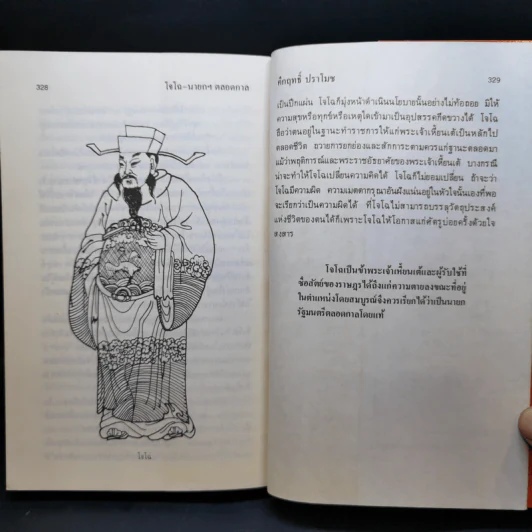 328
โจโฉ-นายกฯ ตลอดกาล
โจโฉ
คึกฤทธิ์ ปราโมช
329
เป็นปึกแผ่น โจโฉก็มุ่งหน้าดำเนินนโยบายนั้นอย่างไม่ท้อถอย มิให้
ความสุขหรือทุกข์หรือเหตุใดเข้ามาเป็นอุปสรรคกีดขวางได้ โจโฉ
ถือว่าตนอยู่ในฐานะทำราชการให้แก่พระเจ้าเหี้ยนเต้เป็นหลักไป
ตลอดชีวิต ถวายการยกย่องและสักการะตามควรแก่ฐานะตลอดมา
แม้ว่าพฤติการณ์และพระราชอัธยาศัยของพระเจ้าเหี้ยนเต้ บางกรณี
น่าจะทำให้โจโฉเปลี่ยนความคิดได้ โจโฉก็ไม่ยอมเปลี่ยน ถ้าจะว่า
โจโฉมีความผิด ความเมตตากรุณาอันฝังแน่นอยู่ในหัวใจนั้นเองที่พอ
จะเรียกว่าเป็นความผิดได้ ที่โจโฉไม่สามารถบรรลุวัตถุประสงค์
แห่งชีวิตของตนได้ก็เพราะโจโฉให้โอกาสแก่ศัตรูบ่อยครั้งด้วยใจ
สงสาร
โจโฉเป็นข้าพระเจ้าเหี้ยนเต้และผู้รับใช้ที่
ซื่อสัตย์ของราษฎรได้ถึงแก่ความตายลงขณะที่อยู่
ในตำแหน่งโดยสมบูรณ์จึงควรเรียกได้ว่าเป็นนายก
รัฐมนตรีตลอดกาลโดยแท้